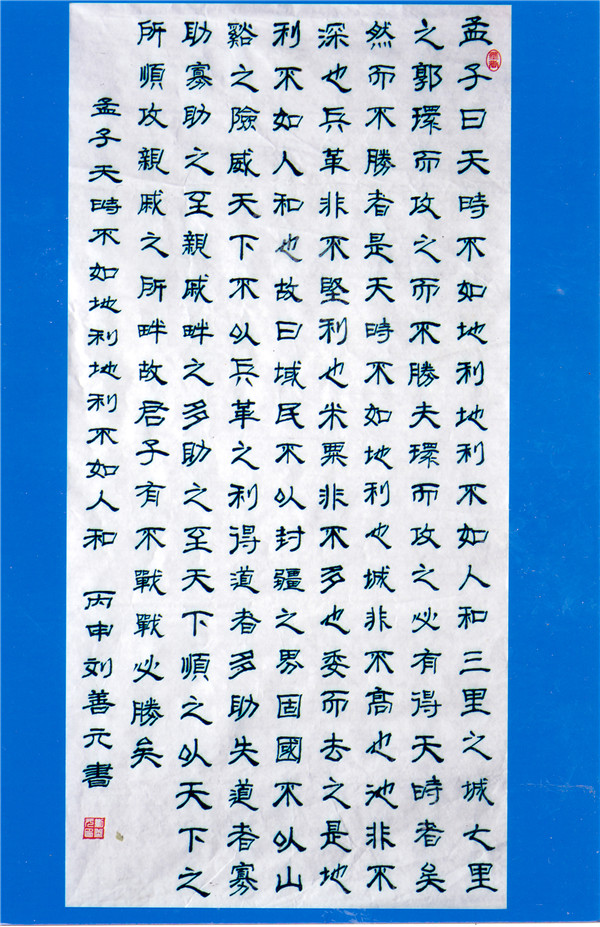 孟子曰天時不如地利地利不如人和三里之城七里
之郭環而攻之而不勝夫環而攻之必有得天時者矣
然而不勝者是天時不如地利也城非不高也池非不
深也兵革非不堅利也米粟非不多也委而去之是地
利不如人和也故曰域民不以封疆之界固國不以山
谿之險威天下不以兵革之利得道者多助失道者寡
助寡助之至親戚畔之多助之至天下順之以天下之
所順攻親戚之所畔故君子有不戰戰必勝矣
孟子天時不如地利地利不如人和 丙申刘善元書